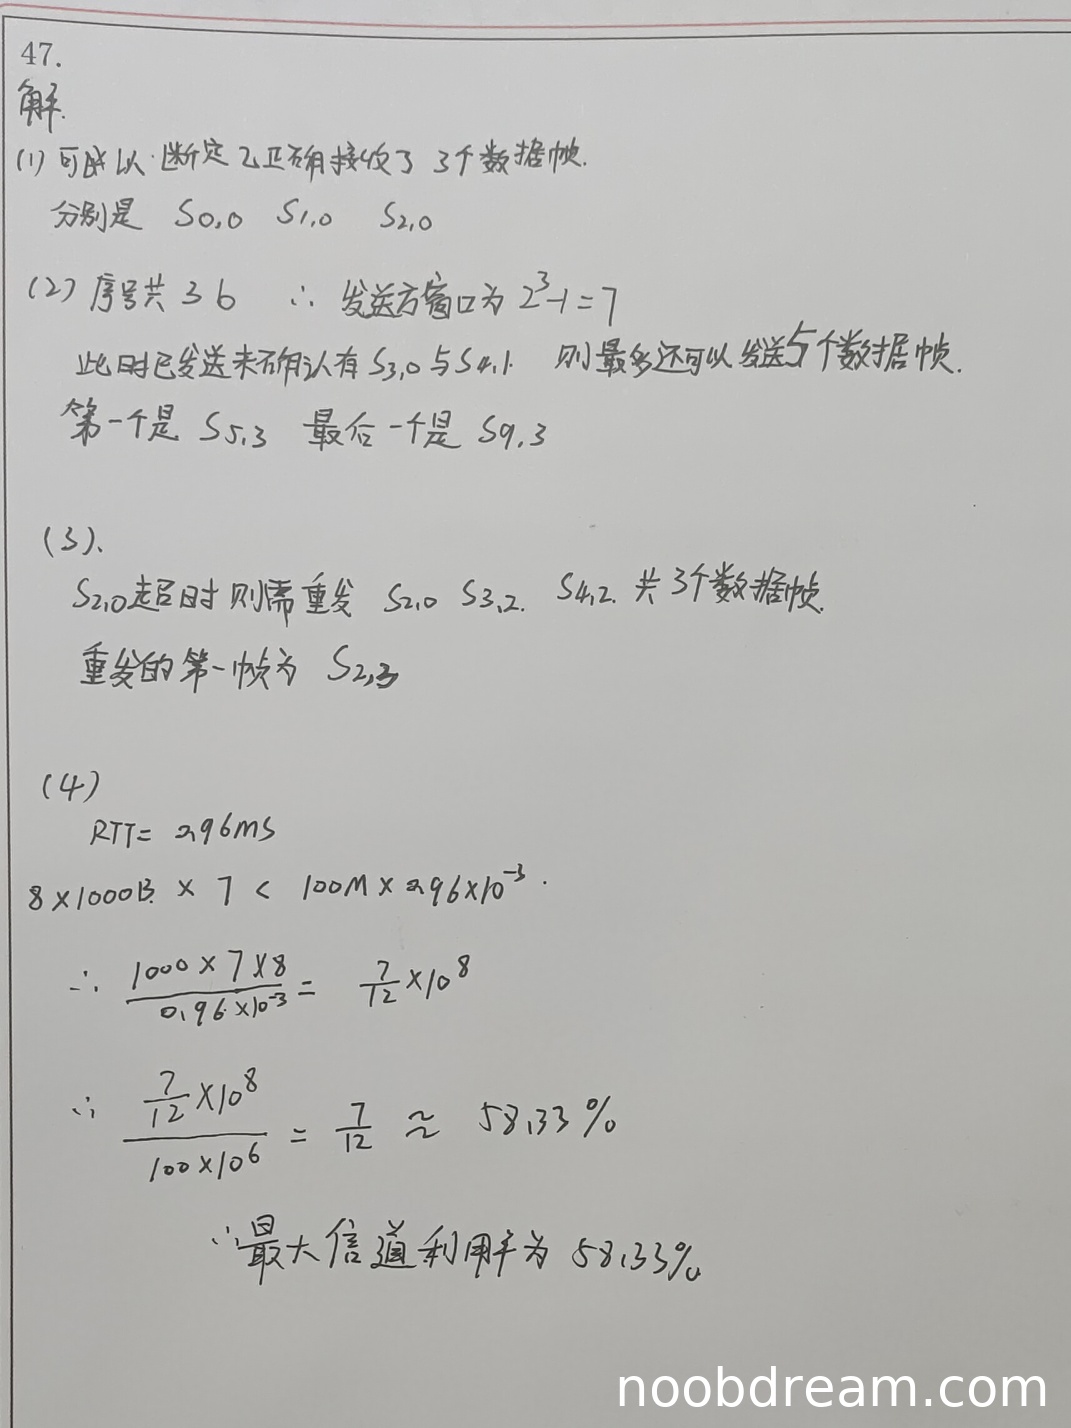 47.
解.
(1) 可以断定乙正确接收了 3个数据帧.
分别是 S0,0 S1,0 S2,0
(2) 序号共 3 b ∴ 发送方窗口为 2³-1=7
此时已发送未确认有 S3,0 与 S4,1. 则最多还可以发送5个数据帧.
第一个是 S5,3 最后一个是 S9,3
(3).
S2,0超时 则需重发 S2,0 S3,2. S4,2. 共 3个数据帧.
重发的第一帧为 S2,3
(4)
RTT= 0.96ms
8×1000B × 7 < 100M×0.96×10⁻³.
∴ 1000×7×8 / 0.96×10⁻³ = 7/12 ×10⁸
∴ 7/12 ×10⁸ / 100×10⁶ = 7/12 ≈ 58.33%
∴最大信道利用率为 58.33%
noobdream.com